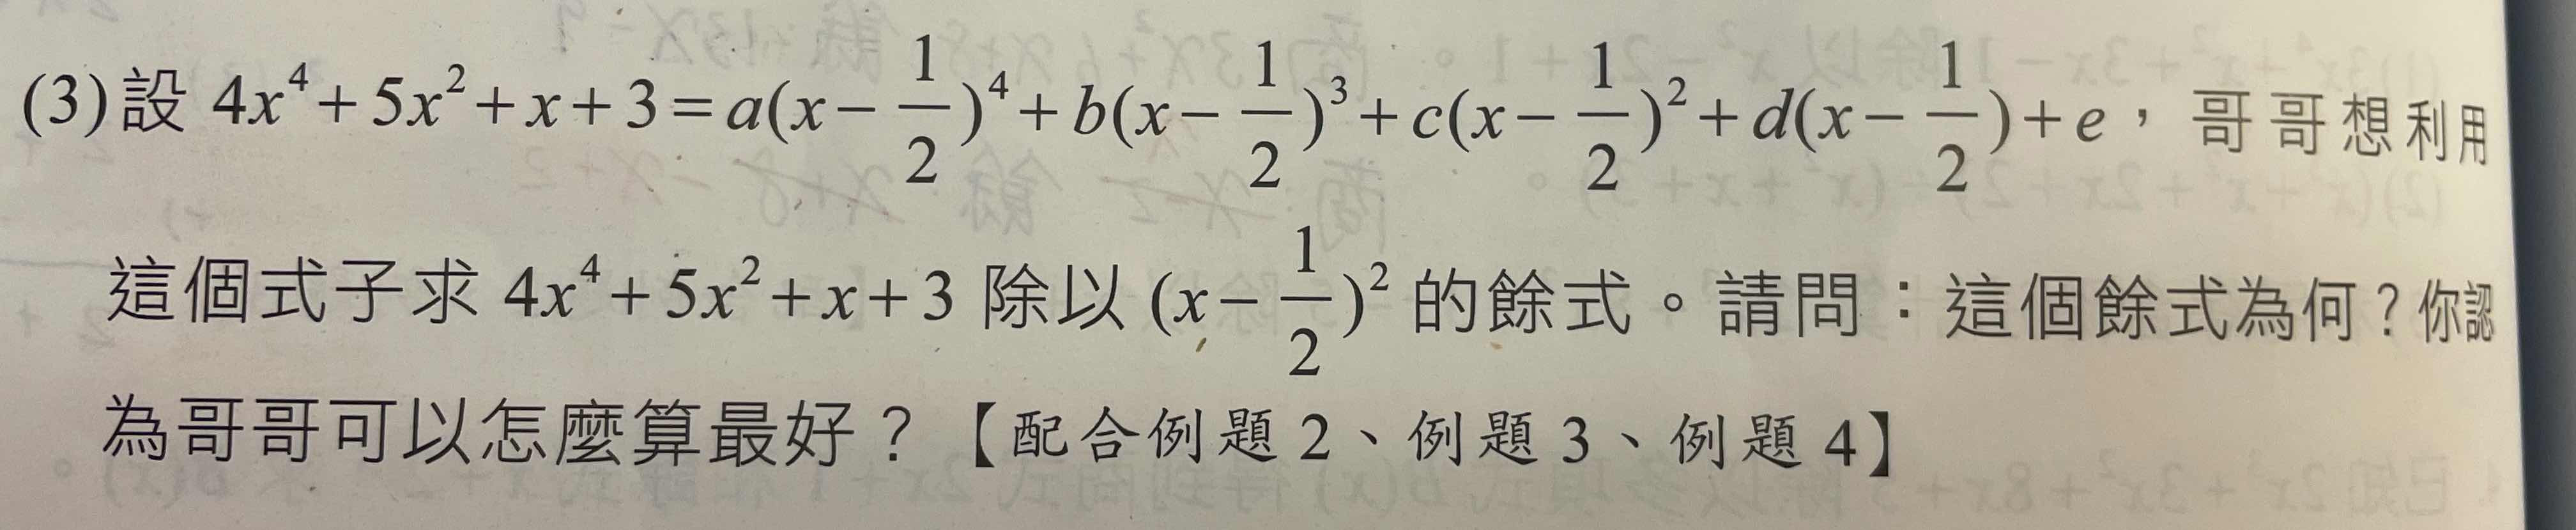 (3)設 4x⁴+5x²+x+3=a(x-1/2)⁴+b(x-1/2)³+c(x-1/2)²+d(x-1/2)+e，哥哥想利用
這個式子求 4x⁴+5x²+x+3 除以 (x-1/2)² 的餘式。請問：這個餘式為何？你認
為哥哥可以怎麼算最好？【配合例題 2、例題 3、例題 4】